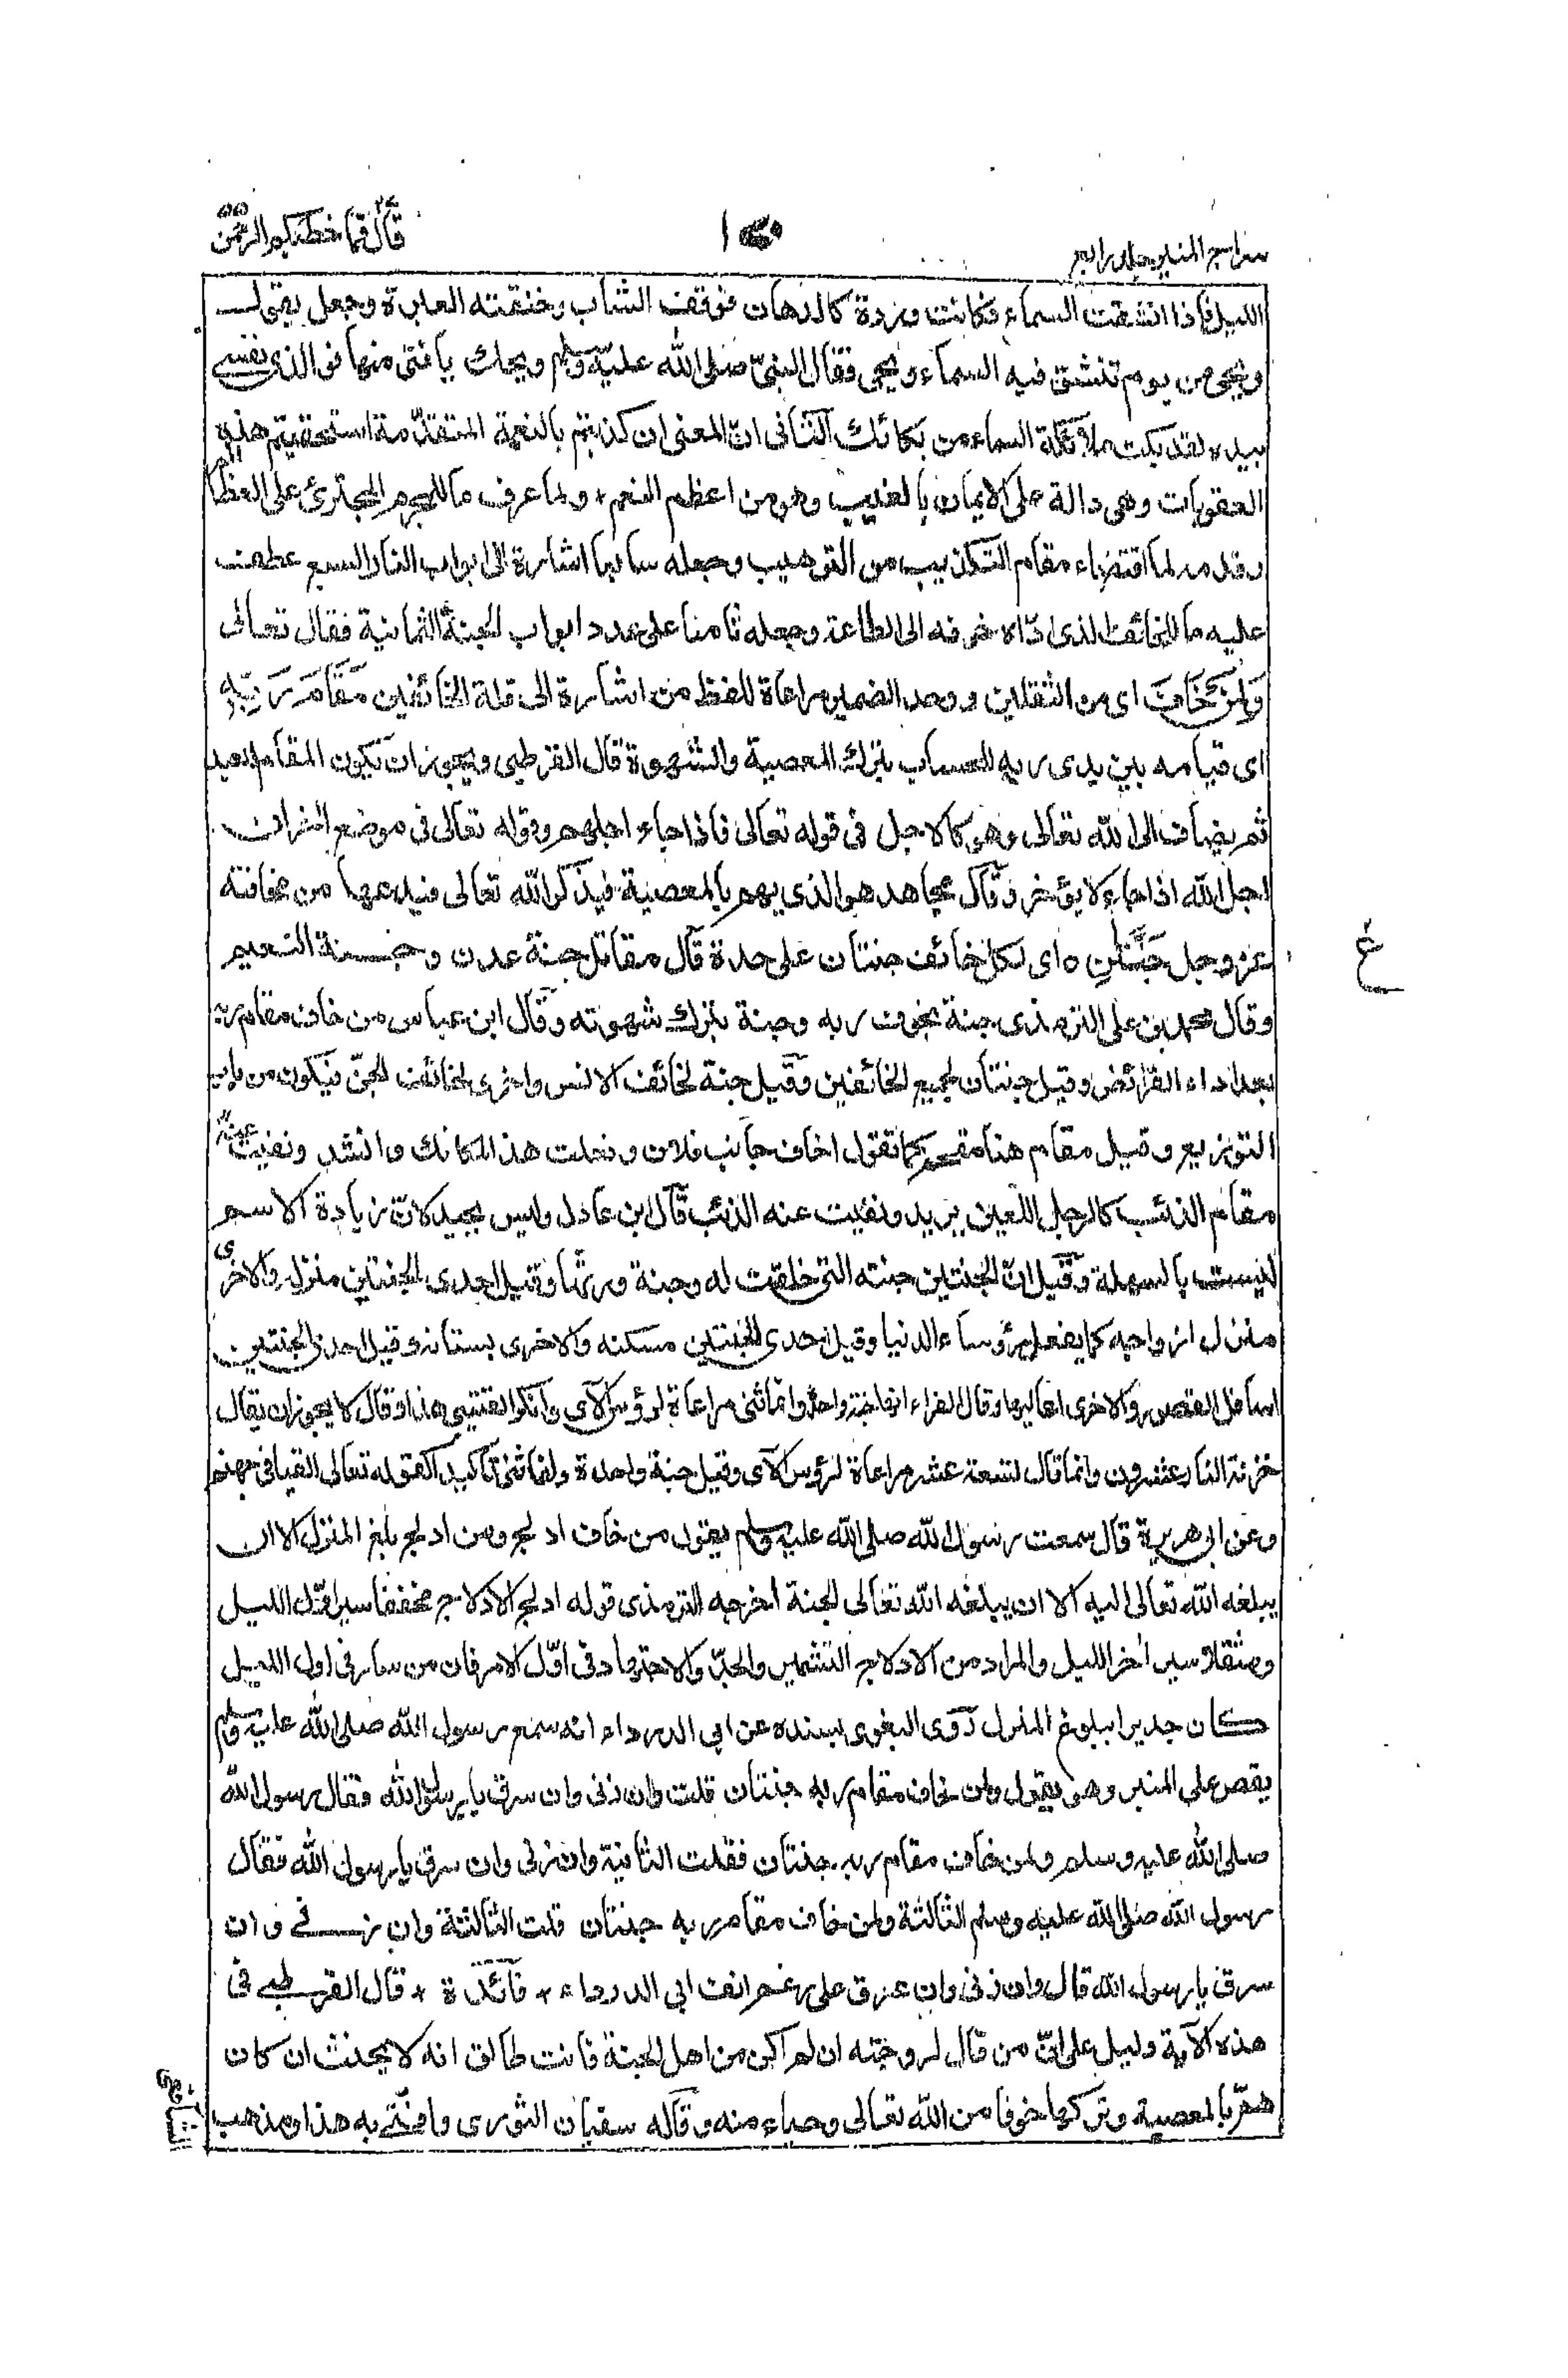 سراج المنير جلد رابع
قال فما خطبكم الرحمن ٥٥
الليل فاذا انشقت السماء فكانت وردة كالدهان فوقف الشاب وخنقته العبرة وجعل يقول
ويحى من يوم تنشق فيه السماء ويحى فقال النبىّ صلى الله عليه وسلم ويحك يا فتى منها فوالذى نفسى
بيده لقد بكت ملائكة السماء من بكائك الثانى انّ المعنى ان كذبتم بالنعمة المتقدّمة استحققتم هذه
العقوبات وهى دالة على الايمان بالغيب وهو من اعظم النعم ولما عرف ما للمجرم المجترئ على العظائم
وقدمه لما اقتضاه مقام التكذيب من الترهيب وجعله سابعا اشارة الى ابواب النار السبع عطف
عليه ما للخائف الذى ادّاه خوفه الى الطاعة وجعله ثامنا على عدد ابواب الجنة الثمانية فقال تعالى
وَلِمَنْ خَافَ اى من الثقلين ووحد الضمير مراعاة للفظ من اشارة الى قلة الخائفين مَقَامَ رَبِّهِ
اى قيامه بين يدى ربه للحساب بترك المعصية والشهوة قال القرطبى ويجوز ان يكون المقام للعبد
ثم يضاف الى الله تعالى وهو كالاجل فى قوله تعالى فاذا جاء اجلهم وقوله تعالى فى موضع اخر ان
اجل الله اذا جاء لا يؤخر وقال مجاهد هو الذى يهم بالمعصية فيذكر الله تعالى فيدعها من مخافته
عز وجل جَنَّتٰنِ ٥ اى لكل خائف جنتان على حدة قال مقاتل جنة عدن وجنة النعيم
ع
وقال محمد بن على الترمذى جنة بخوف ربه وجنة بترك شهوته وقال ابن عباس من خاف مقام ربه
بعد اداء الفرائض وقيل جنتان لجميع الخائفين وقيل جنة لخائف الانس واخرى لخائف الجنّ فيكون من باب
التوزيع وقيل مقام هنا مقحم كما تقول اخاف جانب فلان وفعلت هذا لمكانك وانشد ونفيت عنه
مقام الذئب كالرجل اللعين يريد ونفيت عنه الذئب قال ابن عادل وليس بجيد لانّ زيادة الاسم
ليست بالسهلة وقيل انّ الجنتين جنته التى خلقت له وجنة ورثها وقيل احدى الجنتين منزله والاخرى
منزل ازواجه كما يفعله رؤساء الدنيا وقيل احدى الجنتين مسكنه والاخرى بستانه وقيل احدى الجنتين
اسافل القصور والاخرى اعاليها وقال الفراء انها جنة واحدة وانما ثنى مراعاة لرؤس الآى وانكر القتيبى هذا وقال لا يجوز ان يقال
خزنة النار عشرون وانما قال تسعة عشر مراعاة لرؤس الآى وقيل جنة واحدة وانما ثنى تاكيدا كقوله تعالى القيا فى جهنم
وعن ابى هريرة قال سمعت رسول الله صلى الله عليه وسلم يقول من خاف ادلج ومن ادلج بلغ المنزل الا ان
يبلغه الله تعالى اليه الا ان يبلغه الله تعالى الجنة اخرجه الترمذى قوله ادلج الادلاج مخففا سير اوّل الليل
ومثقلا سير اٰخر الليل والمراد من الادلاج التشمير والجدّ والاجتهاد فى اوّل الامر فان من سار فى اول الليل
كان جديرا ببلوغ المنزل روى البغوى بسنده عن ابى الدرداء انه سمع رسول الله صلى الله عليه وسلم
يقص على المنبر وهو يقول ولمن خاف مقام ربه جنتان قلت وان زنى وان سرق يا رسول الله فقال رسول الله
صلى الله عليه وسلم ولمن خاف مقام ربه جنتان فقلت الثانية وان زنى وان سرق يا رسول الله فقال
رسول الله صلى الله عليه وسلم الثالثة ولمن خاف مقام ربه جنتان قلت الثالثة وان زنى وان
سرق يا رسول الله قال وان زنى وان سرق على رغم انف ابى الدرداء * فائدة * قال القرطبى فى
هذه الآية دليل على انّ من قال لزوجته ان لم اكن من اهل الجنة فانت طالق انه لا يحنث ان كان
همّ بالمعصية وتركها خوفا من الله تعالى وحياء منه وقاله سفيان الثورى وافتى به هذا ومذهب